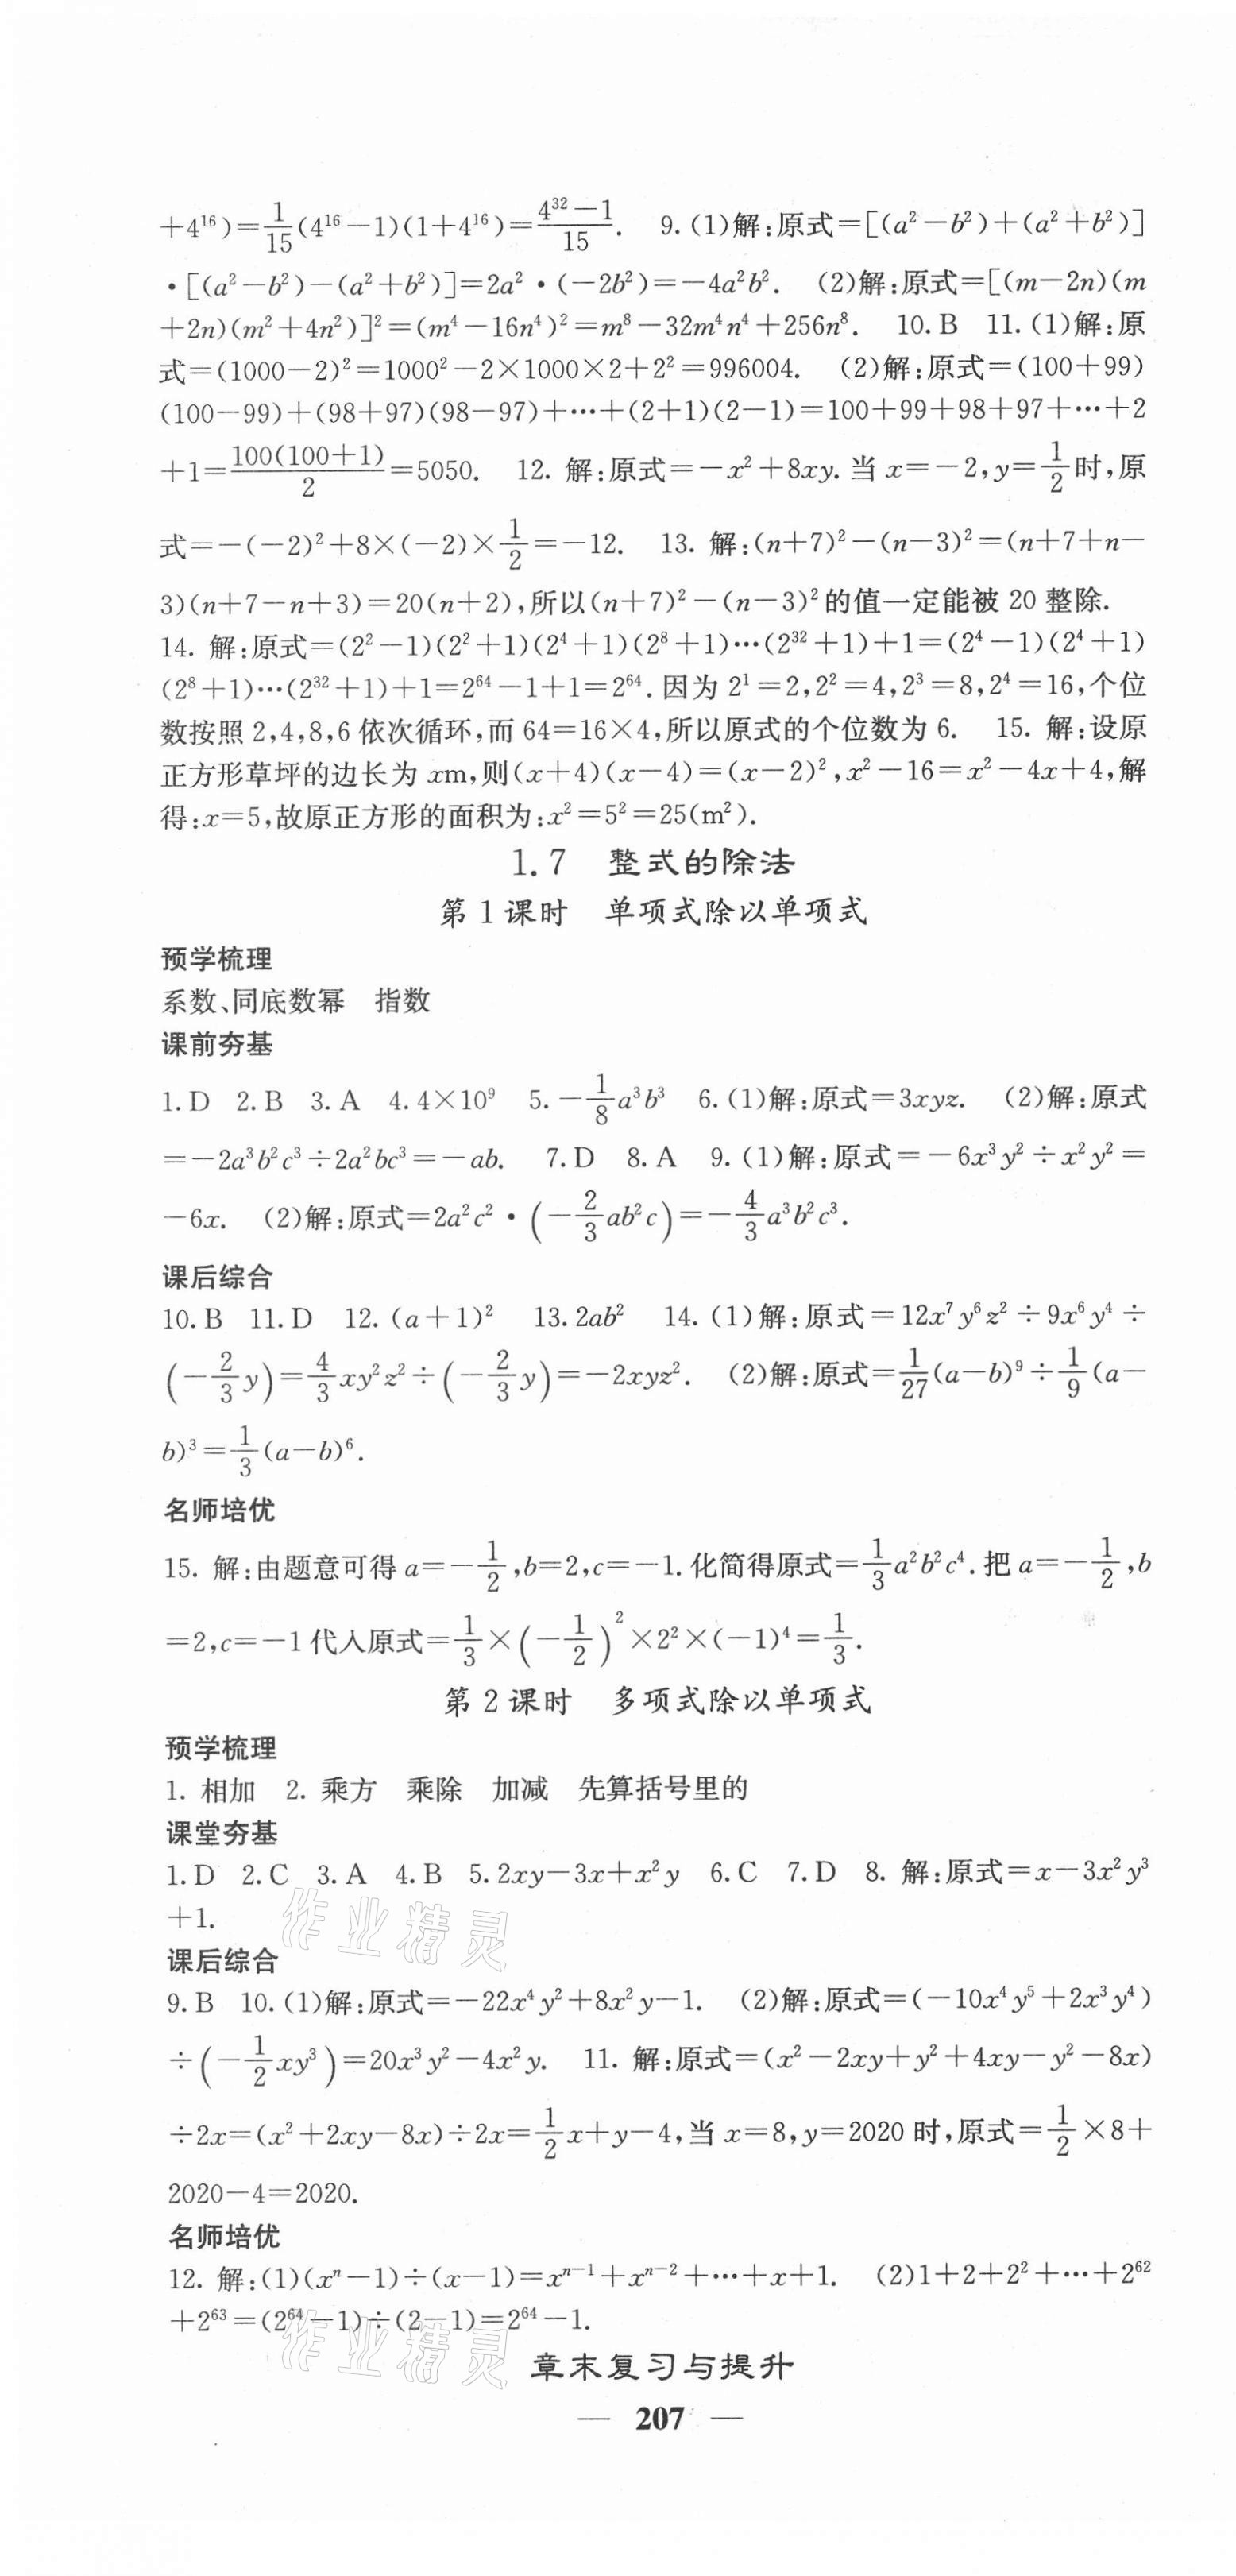 +4¹⁶)=1/15(4¹⁶−1)(1+4¹⁶)=(4³²−1)/15. 9.(1)解:原式=[(a²−b²)+(a²+b²)]
·[(a²−b²)−(a²+b²)]=2a²·(−2b²)=−4a²b². (2)解:原式=[(m−2n)(m
+2n)(m²+4n²)]²=(m⁴−16n⁴)²=m⁸−32m⁴n⁴+256n⁸. 10.B 11.(1)解:原
式=(1000−2)²=1000²−2×1000×2+2²=996004. (2)解:原式=(100+99)
(100−99)+(98+97)(98−97)+⋯+(2+1)(2−1)=100+99+98+97+⋯+2
+1=100(100+1)/2=5050. 12. 解:原式=−x²+8xy.当 x=−2,y=1/2时,原
式=−(−2)²+8×(−2)×1/2=−12. 13. 解:(n+7)²−(n−3)²=(n+7+n−
3)(n+7−n+3)=20(n+2),所以(n+7)²−(n−3)²的值一定能被 20 整除.
14. 解:原式=(2²−1)(2²+1)(2⁴+1)(2⁸+1)⋯(2³²+1)+1=(2⁴−1)(2⁴+1)
(2⁸+1)⋯(2³²+1)+1=2⁶⁴−1+1=2⁶⁴.因为 2¹=2,2²=4,2³=8,2⁴=16,个位
数按照 2,4,8,6 依次循环,而 64=16×4,所以原式的个位数为 6. 15. 解:设原
正方形草坪的边长为 xm,则(x+4)(x−4)=(x−2)²,x²−16=x²−4x+4,解
得:x=5,故原正方形的面积为:x²=5²=25(m²).
1.7 整式的除法
第 1 课时 单项式除以单项式
预学梳理
系数、同底数幂 指数
课前夯基
1.D 2.B 3.A 4.4×10⁹ 5.−1/8a³b³ 6.(1)解:原式=3xyz. (2)解:原式
=−2a³b²c³÷2a²bc³=−ab. 7.D 8.A 9.(1)解:原式=−6x³y²÷x²y²=
−6x. (2)解:原式=2a²c²·(−2/3ab²c)=−4/3a³b²c³.
课后综合
10.B 11.D 12.(a+1)² 13.2ab² 14.(1)解:原式=12x⁷y⁶z²÷9x⁶y⁴÷
(−2/3y)=4/3xy²z²÷(−2/3y)=−2xyz². (2)解:原式=1/27(a−b)⁹÷1/9(a−
b)³=1/3(a−b)⁶.
名师培优
15. 解:由题意可得 a=−1/2,b=2,c=−1.化简得原式=1/3a²b²c⁴.把 a=−1/2,b
=2,c=−1 代入原式=1/3×(−1/2)²×2²×(−1)⁴=1/3.
第 2 课时 多项式除以单项式
预学梳理
1. 相加 2. 乘方 乘除 加减 先算括号里的
课堂夯基
1.D 2.C 3.A 4.B 5.2xy−3x+x²y 6.C 7.D 8. 解:原式=x−3x²y³
+1.
作业精灵
课后综合
9.B 10.(1)解:原式=−22x⁴y²+8x²y−1. (2)解:原式=(−10x⁴y⁵+2x³y⁴)
÷(−1/2xy³)=20x³y²−4x²y. 11. 解:原式=(x²−2xy+y²+4xy−y²−8x)
÷2x=(x²+2xy−8x)÷2x=1/2x+y−4,当 x=8,y=2020 时,原式=1/2×8+
2020−4=2020.
名师培优
12. 解:(1)(xⁿ−1)÷(x−1)=xⁿ⁻¹+xⁿ⁻²+⋯+x+1. (2)1+2+2²+⋯+2⁶²
+2⁶³=(2⁶⁴−1)÷(2−1)=2⁶⁴−1.
作业精灵
章末复习与提升
— 207 —